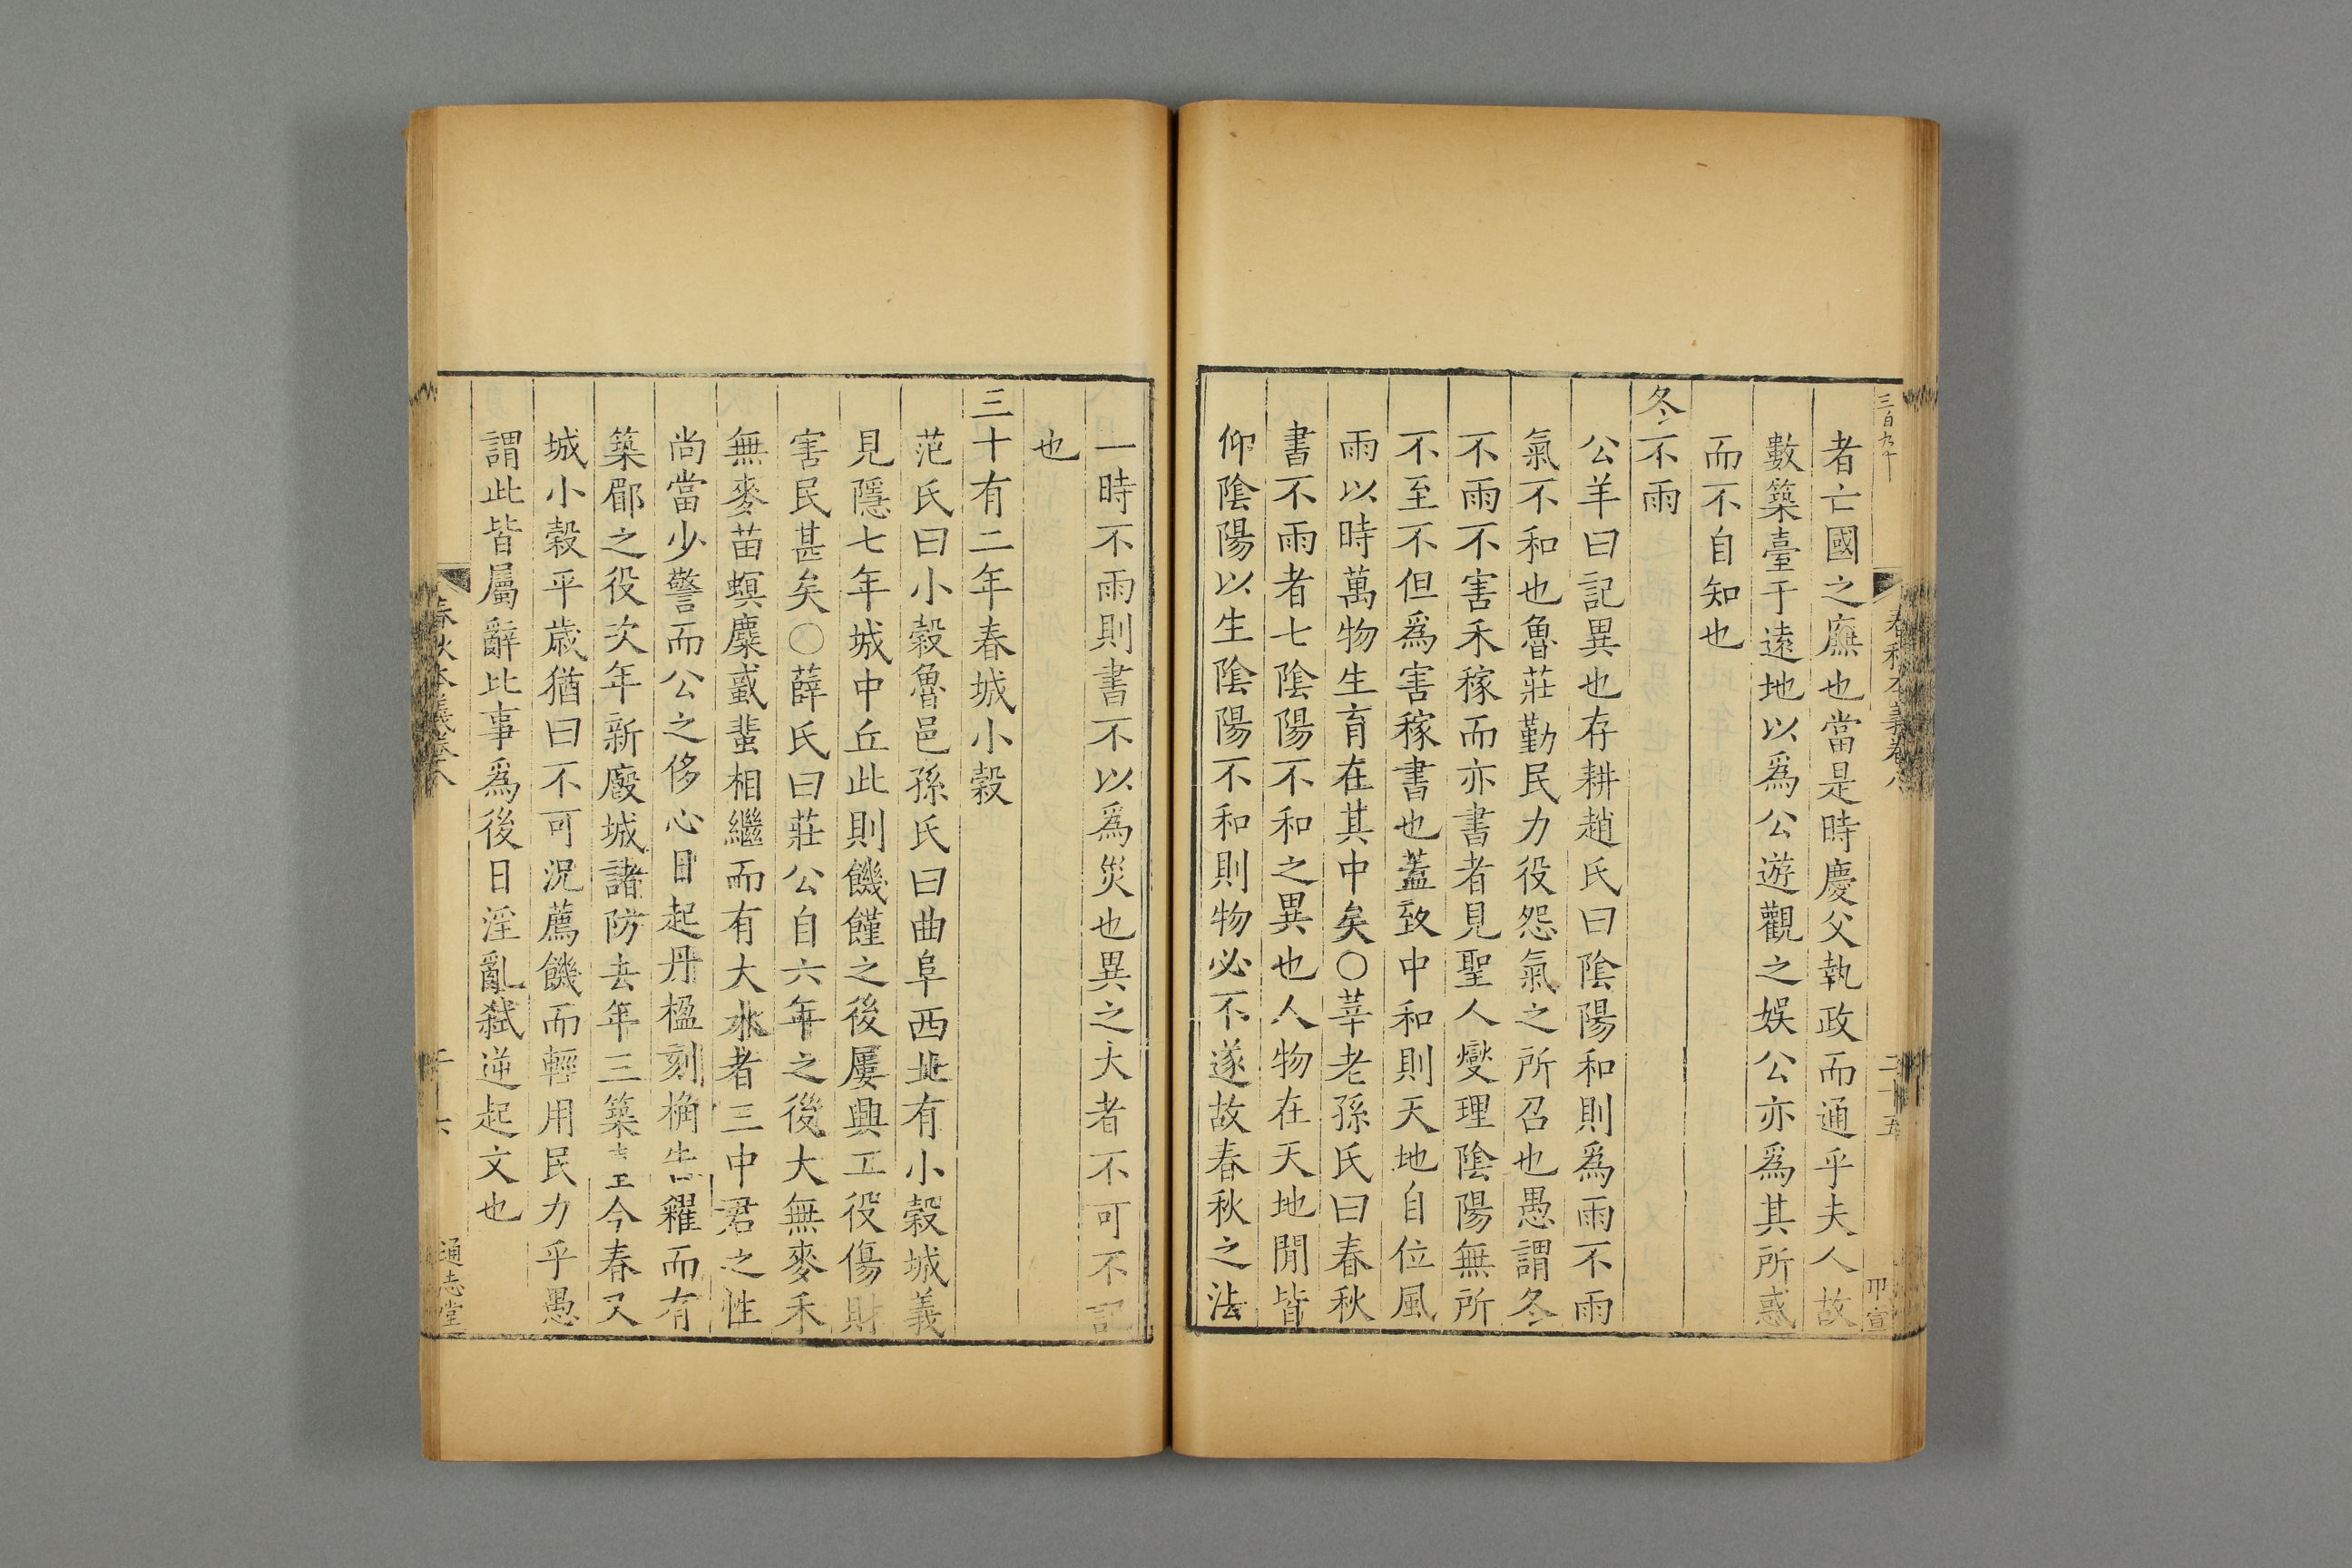 三百九十
春秋本義卷八
二十五
者亡國之廡也當是時慶父執政而通乎夫人故
數築臺于遠地以爲公遊觀之娛公亦爲其所惑
而不自知也
冬不雨
公羊曰記異也存耕趙氏曰陰陽和則爲雨不雨
氣不和也魯莊勤民力役怨氣之所召也愚謂冬
不雨不害禾稼而亦書者見聖人燮理陰陽無所
不至不但爲害稼書也蓋致中和則天地自位風
雨以時萬物生育在其中矣○莘老孫氏曰春秋
書不雨者七陰陽不和之異也人物在天地閒皆
仰陰陽以生陰陽不和則物必不遂故春秋之法
一時不雨則書不以爲災也異之大者不可不記
也
三十有二年春城小穀
范氏曰小穀魯邑孫氏曰曲阜西北有小穀城義
見隱七年城中丘此則饑饉之後屢興工役傷財
害民甚矣○薛氏曰莊公自六年之後大無麥禾
無麥苗螟麋蜮蜚相繼而有大水者三中君之性
尚當少警而公之侈心目起丹楹刻桷告糴而有
築郿之役次年新廄城諸防去年三築今春又
城小穀平歲猶曰不可況薦饑而輕用民力乎愚
謂此皆屬辭比事爲後日淫亂弒逆起文也
春秋本義卷八
通志堂